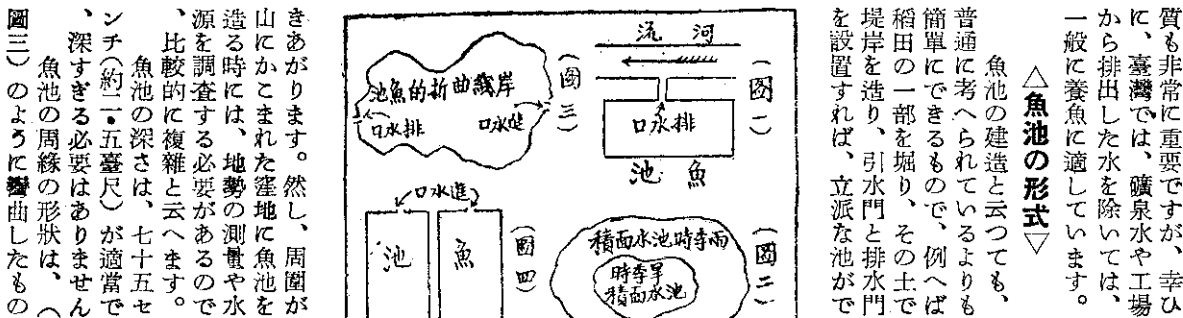 質も非常に重要ですが、幸ひ
に、臺灣では、礦泉水や工場
から排出した水を除いては、
一般に養魚に適しています。
△魚池の形式▽
魚池の建造と云つても、
普通に考へられているよりも
簡單にできるもので、例へば
稻田の一部を堀り、その土で
堤岸を造り、引水門と排水門
を設置すれば、立派な池がで
(図一)
河流
排水口
魚池
(図二)
雨季時池水面積
旱季時池水面積
(図三)
岸線曲折的魚池
進水口
排水口
(図四)
進水口
魚
池
きあがります。然し、周圍が
山にかこまれた窪地に魚池を
造る時には、地勢の測量や水
源を調査する必要があるので
、比較的に複雜と云へます。
魚池の深さは、七十五セ
ンチ(約二・五臺尺)が適當で
、深すぎる必要はありません
魚池の周緣の形狀は、(
圖三)のように彎曲したもの